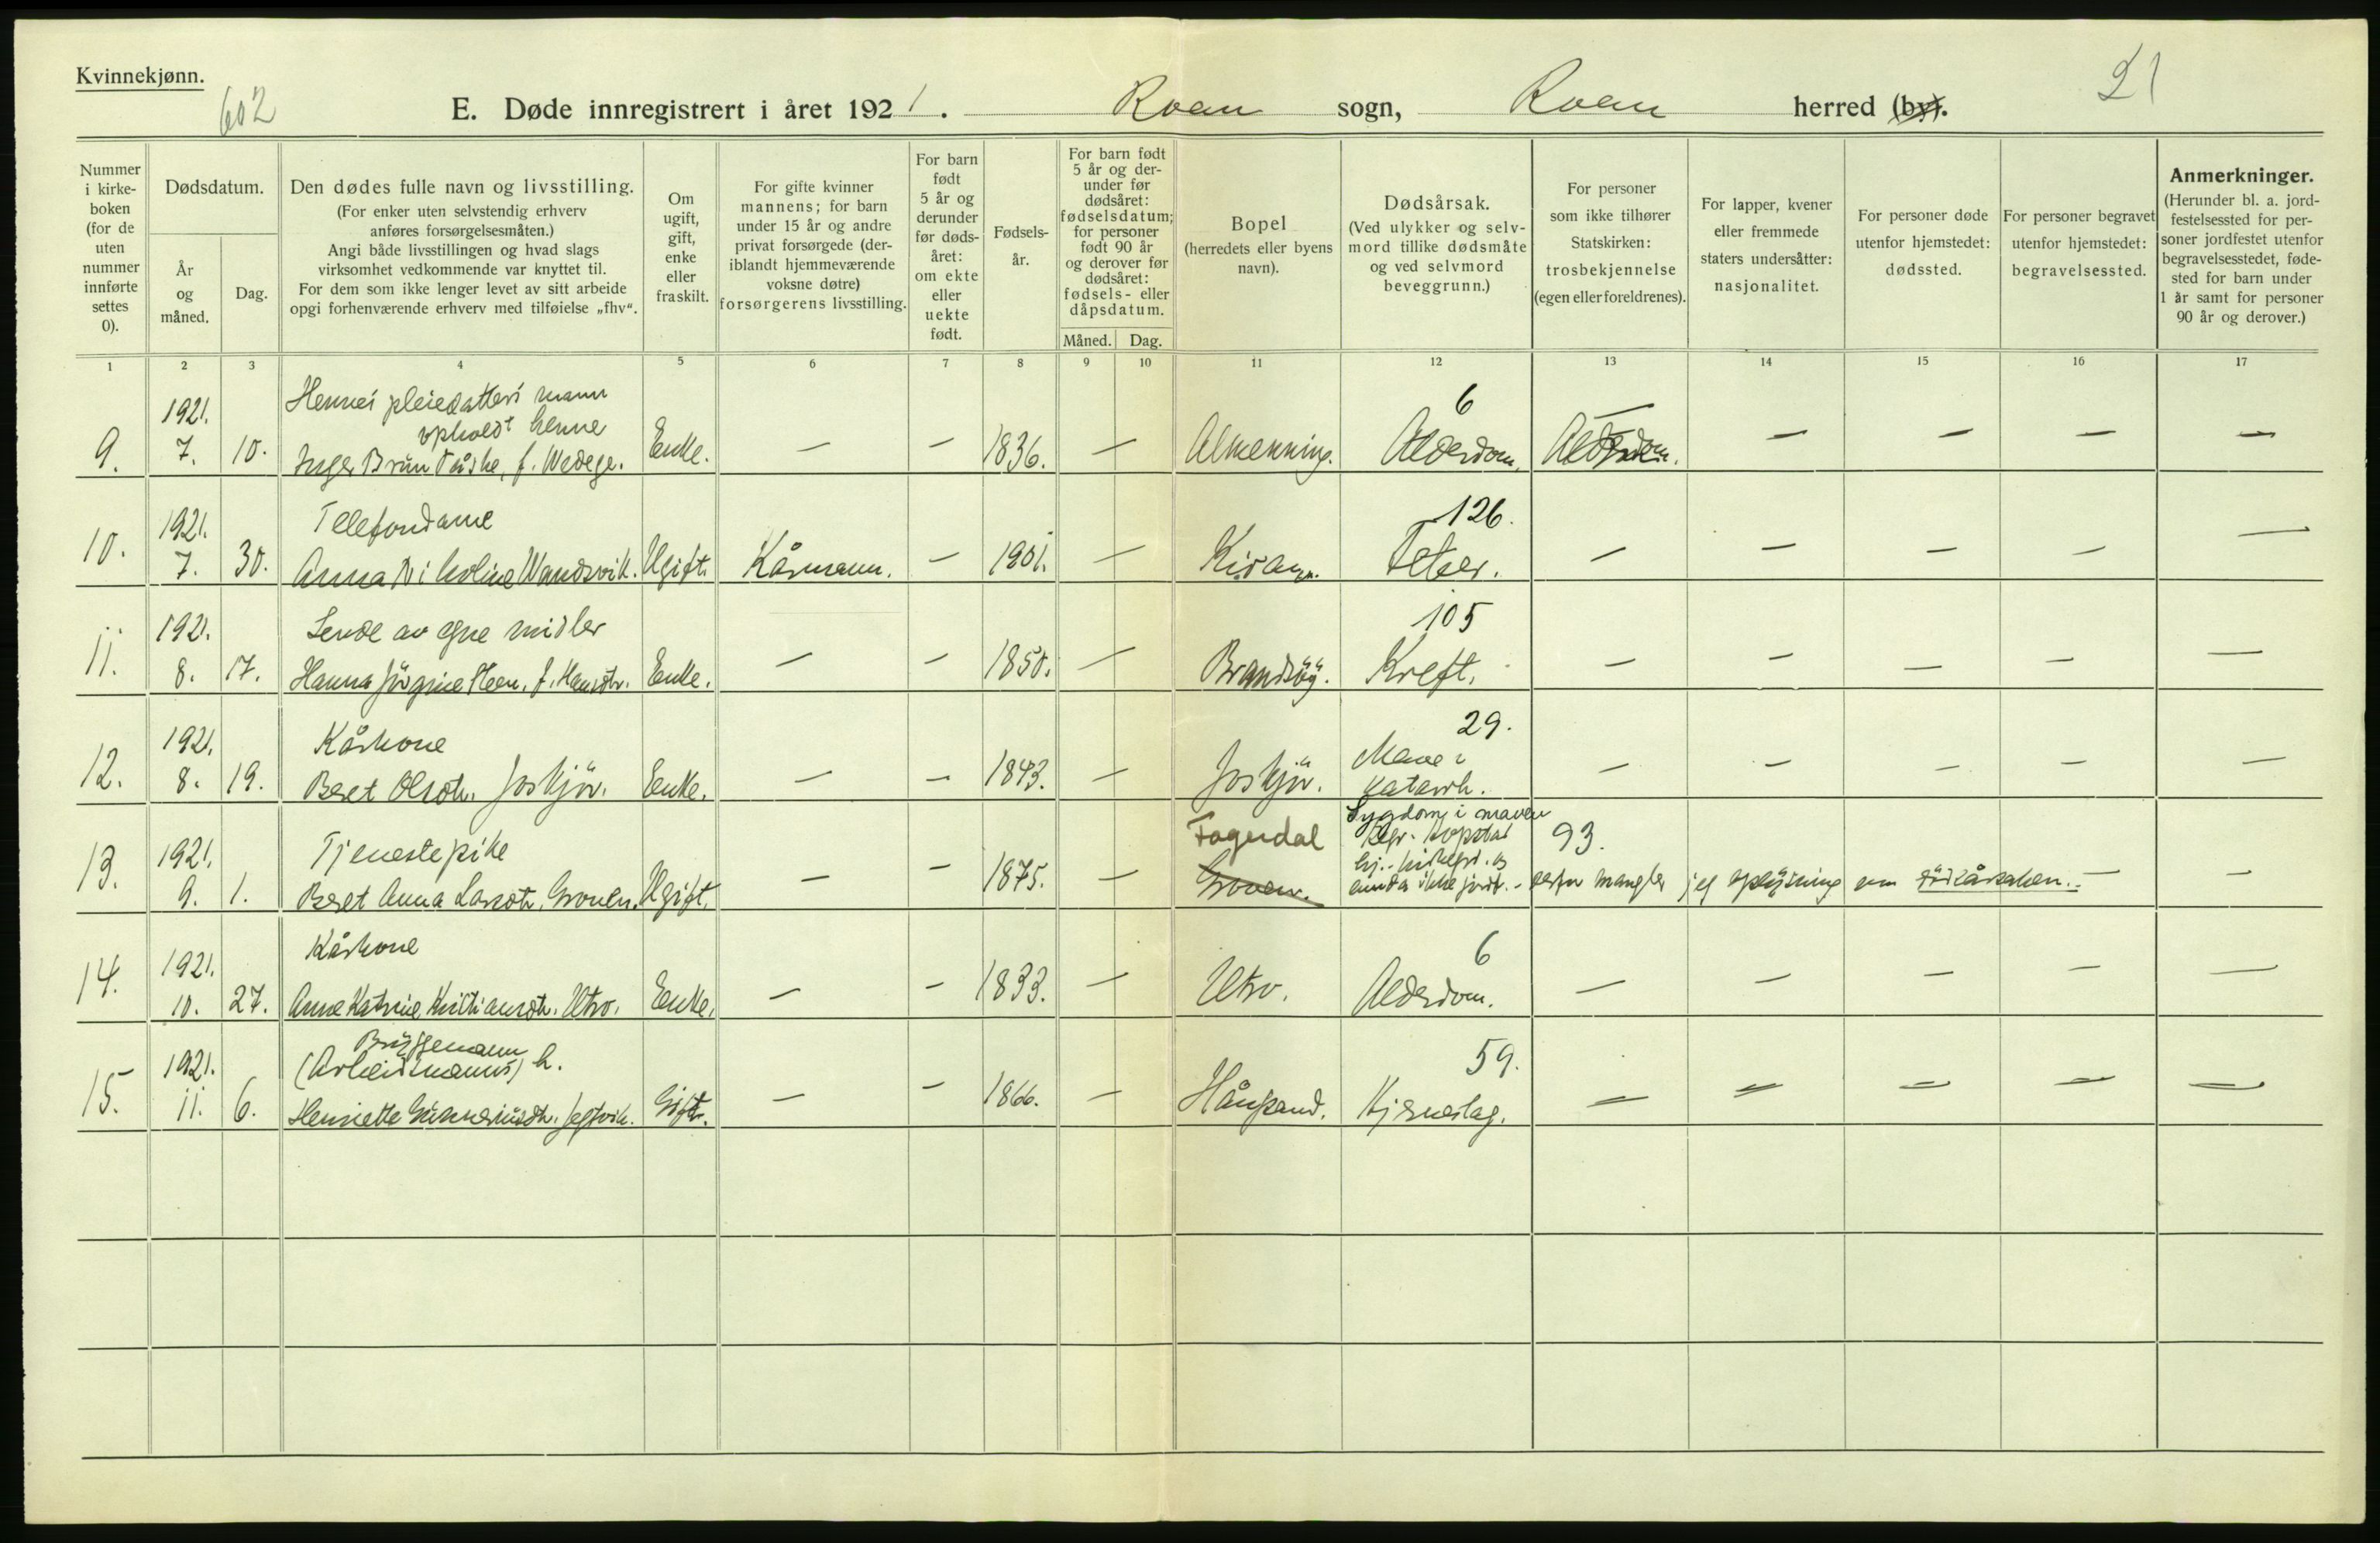 Kvinnekjønn.
602
E. Døde innregistrert i året 1921. Roan sogn, Roan herred (by).
21
Nummer i kirke- boken (for de uten nummer innførte settes 0).
Dødsdatum.
År og måned.
Dag.
Den dødes fulle navn og livsstilling.
(For enker uten selvstendig erhverv
anføres forsørgelsesmåten.)
Angi både livsstillingen og hvad slags
virksomhet vedkommende var knyttet til.
For dem som ikke lenger levet av sitt arbeide
opgi forhenværende erhverv med tilføielse „fhv“.
Om ugift, gift, enke eller fraskilt.
For gifte kvinner
mannens; for barn
under 15 år og andre
privat forsørgede (der-
iblandt hjemmeværende
voksne døtre)
forsørgerens livsstilling.
For barn født 5 år og derunder før døds- året: om ekte eller uekte født.
Fødsels- år.
For barn født
5 år og der-
under før
dødsåret:
fødselsdatum;
for personer
født 90 år
og derover før
dødsåret:
fødsels- eller
dåpsdatum.
Måned. Dag.
Bopel
(herredets eller byens
navn).
Dødsårsak.
(Ved ulykker og selv-
mord tillike dødsmåte
og ved selvmord
beveggrunn.)
For personer
som ikke tilhører
Statskirken:
trosbekjennelse
(egen eller foreldrenes).
For lapper, kvener
eller fremmede
staters undersåtter:
nasjonalitet.
For personer døde
utenfor hjemstedet:
dødssted.
For personer begravet
utenfor hjemstedet:
begravelsessted.
Anmerkninger.
(Herunder bl. a. jord-
festelsessted for per-
soner jordfestet utenfor
begravelsesstedet, føde-
sted for barn under
1 år samt for personer
90 år og derover.)
1 2 3 4 5 6 7 8 9 10 11 12 13 14 15 16 17
Hennes pleiedatters mann
1921. opholdt henne 6
9. 7. 10. Inger Brun Påske, f. Wedege. Enke. — — 1836. — Almenning. Alderdom. Alderdom. — — — —
1921. Telefondame 126.
10. 7. 30. Anna Nikoline Wandsvik. Ugift. Kårmann. — 1901. — Kiran. — — — — —
1921. Levde av egne midler 105
11. 8. 17. Hanna Jörgine Steen, f. Hansdtr. Enke. — — 1850. — Brandsöy. Kreft. — — — — —
1921. Kårkone 29.
Mave
12. 8. 19. Beret Olsdtr. Joskjör. Enke. — — 1843. — Joskjör. katarrh. — — — — —
Sygdom i maven
1921. Tjenestepike Fagerdal 93.
13. 9. 1. Beret Anna Larsdtr. Grouen. Ugift. — — 1875. — Grouen. enda ikke jordf. - derfor mangler jeg oplysning om dödsårsaken. — —
1921. Kårkone 6
14. 10. 27. Anne Katrine Kristiansdtr. Utro. Enke. — — 1833. — Utro. Alderdom. — — — — —
Bryggemann
1921. (Arbeidsmanns) h. 59.
15. 11. 6. Henriette Gunneriusdtr. Jegtvik. Gift. — — 1866. — Håpsand. Hjerneslag. — — — — —